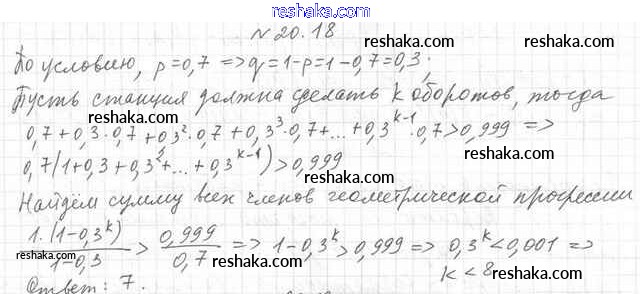 reshaka.com
№ 20.18
reshaka.com reshaka.com
По условию, p=0,7 => q=1-p=1-0,7=0,3;
Пусть станция должна сделать k оборотов, тогда
0,7+0,3·0,7+0,3²·0,7+0,3³·0,7+...+0,3^(k-1)·0,7>0,999 =>
0,7(1+0,3+0,3²+...+0,3^(k-1))>0,999
reshaka.com reshaka.com
Найдём сумму всех членов геометрической прогрессии
1·(1-0,3^k)/(1-0,3) > 0,999/0,7 => 1-0,3^k>0,999 => 0,3^k<0,001 =>
reshaka.com reshaka.com
k<8
Ответ: 7.
reshaka.com